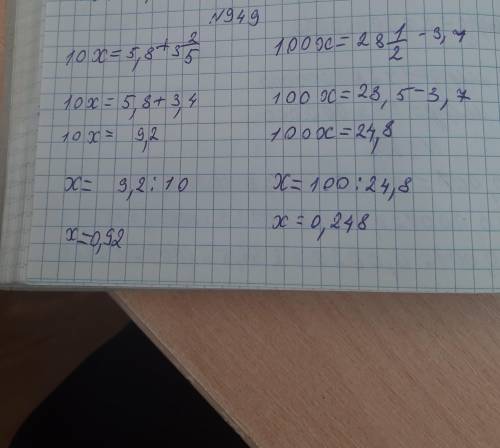 №949
10x = 5,8 + 3 2/5
10x = 5,8 + 3,4
10x = 9,2
x = 9,2 : 10
x = 0,92
100x = 28 1/2 - 3,7
100x = 28,5 - 3,7
100x = 24,8
x = 100 : 24,8
x = 0,248